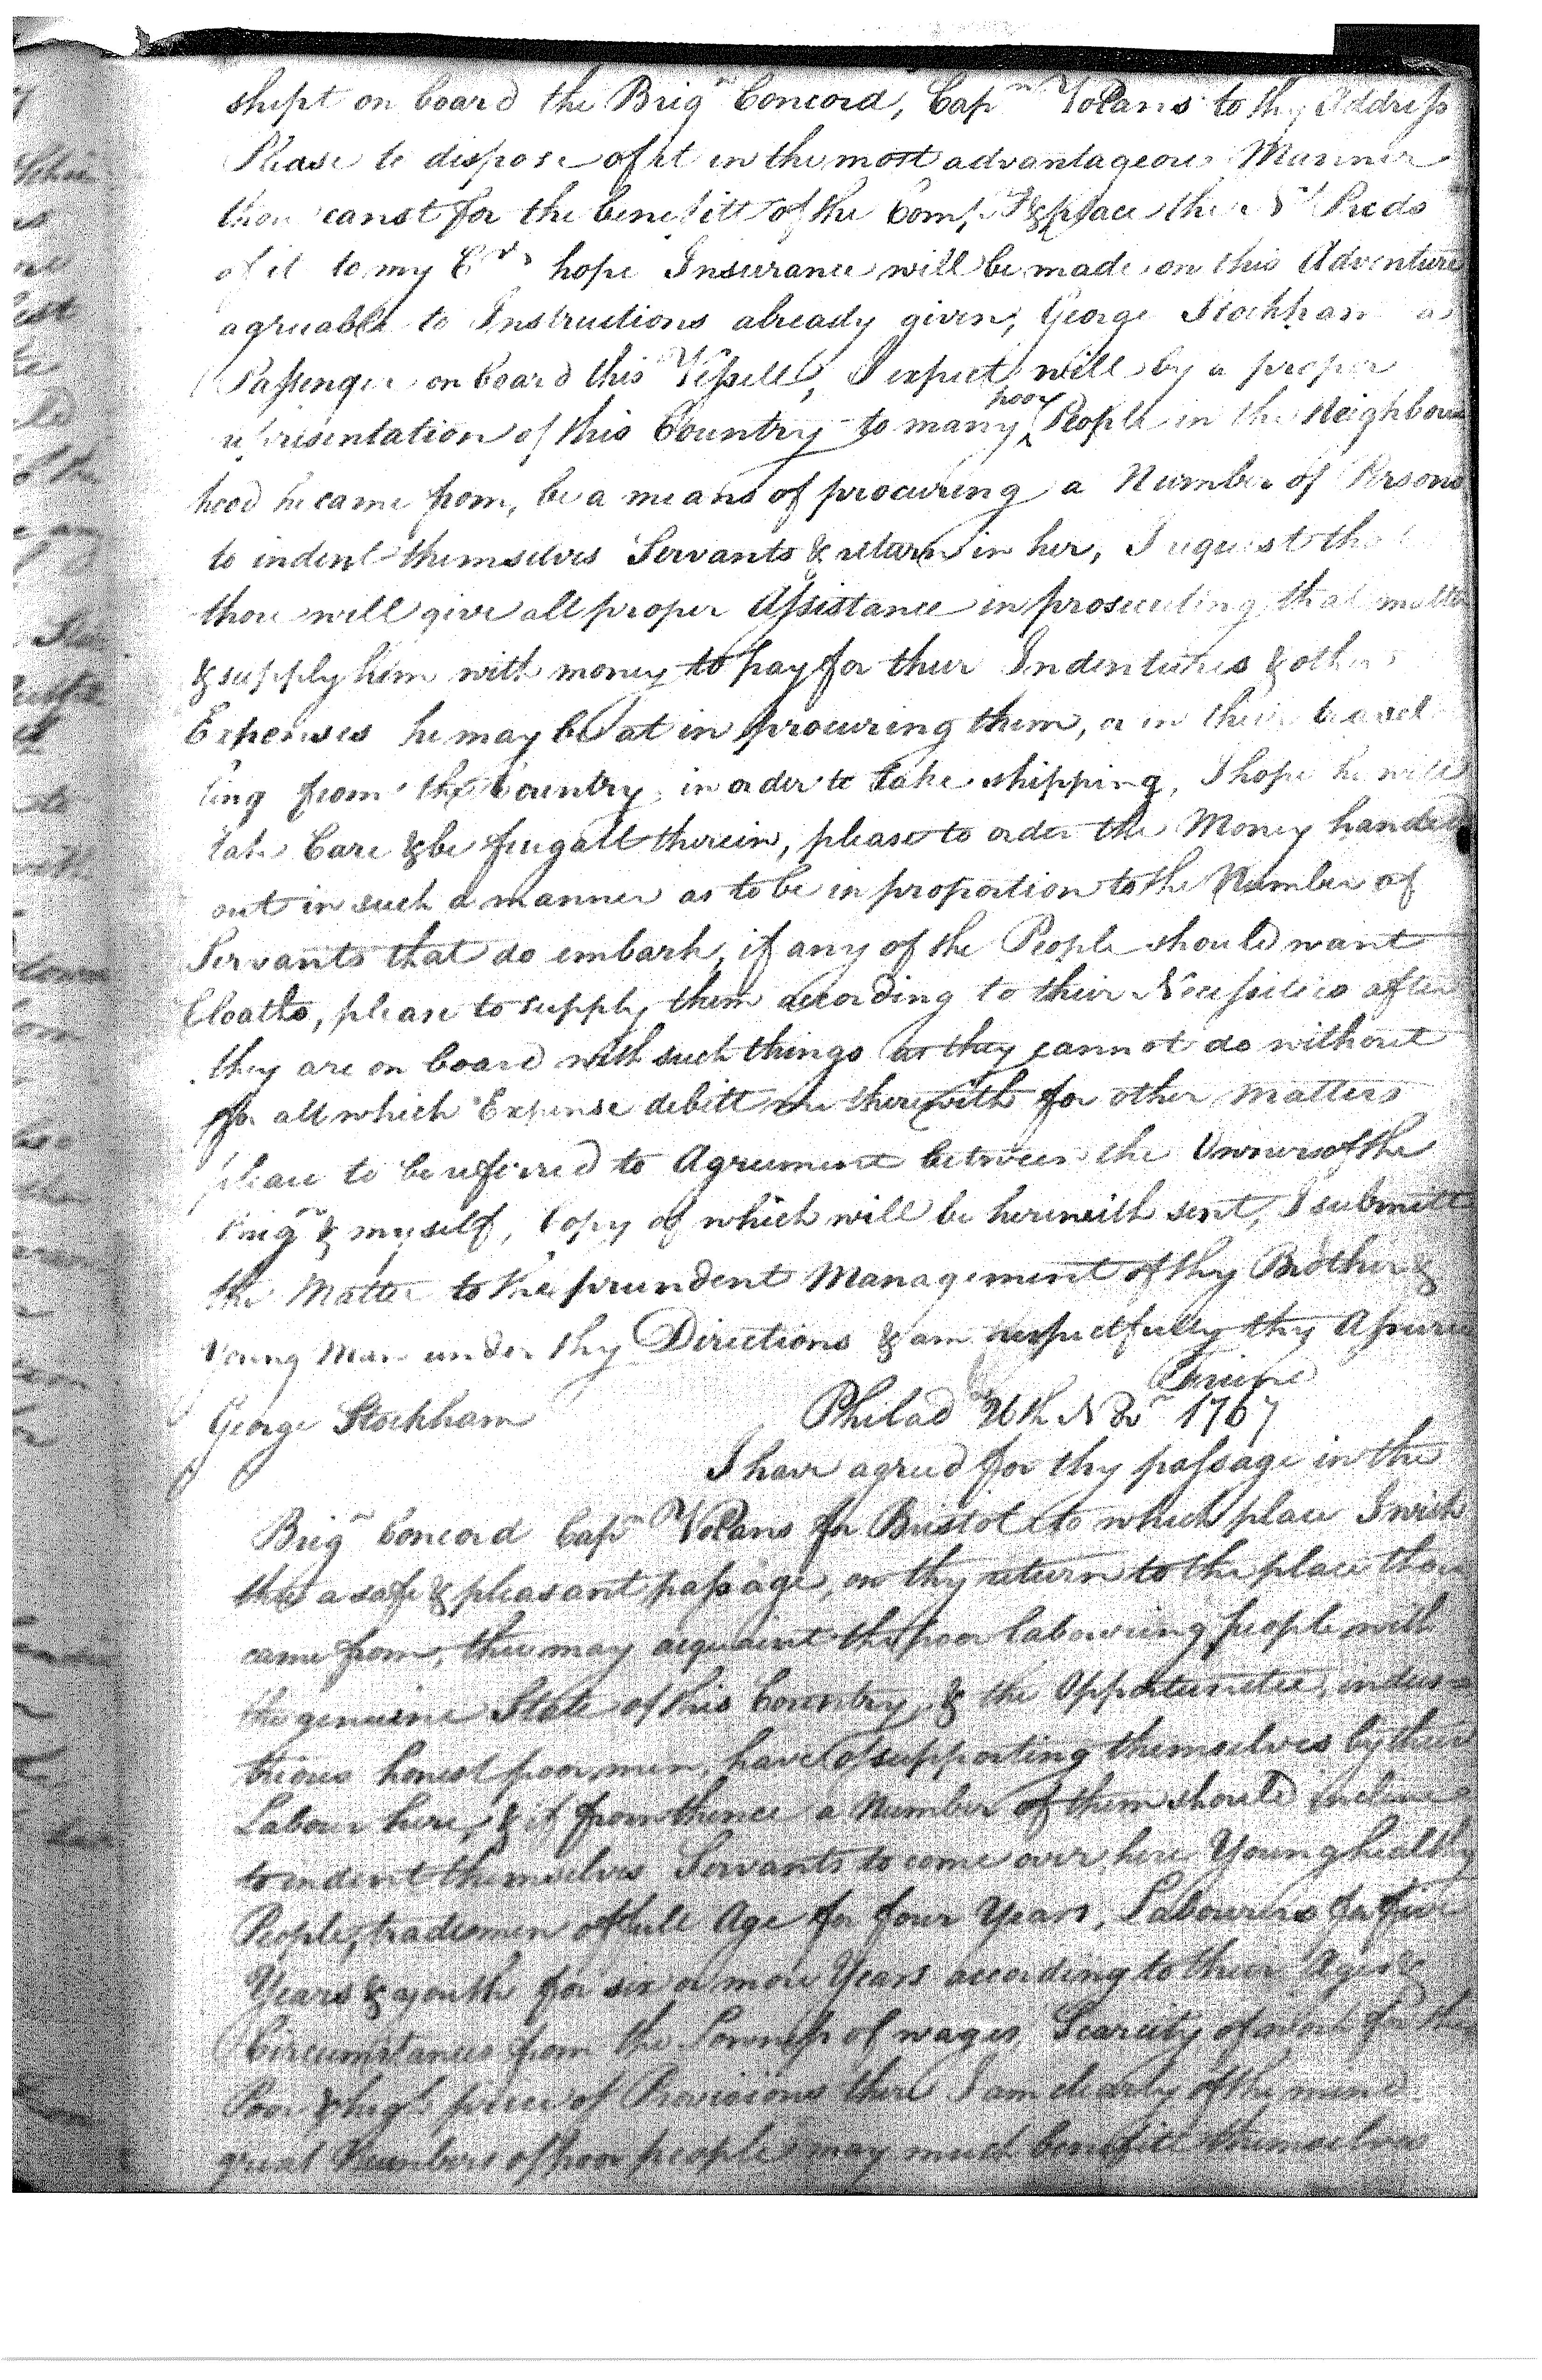 shipt on board the Brign Concord, Capn Volans to thy Address
Please to dispose of it in the most advantageous Manner
thou canst for the benefitt of the Compy & place the Nt Prcds
of it to my Crt, hope Insurance will be made on this Adventure
agreable to Instructions already given, George Stockham a
Passenger on board this Vessell, I expect will by a proper
representation of this Country to many poor People in the Neighbour
hood he came from, be a means of procuring a Number of Persons
to indent themselves Servants & return in her, I request that
thou will give all proper Assistance in prosecuting that matter
& supply him with money to pay for their Indentures & other
Expenses he may be at in procuring them, or in their travel
ling from the Country in order to take shipping, I hope he will
take Care & be frugall therein, please to order the Money handed
out in such a manner as to be in proportion to the Number of
Servants that do embark, if any of the People should want
Cloaths, please to supply them according to their Necessities after
they are on board with such things as they cannot do without
for all which Expense debitt me therewith for other matters
please to be referred to Agreement between the Owners of the
Brign & myself, Copy of which will be herewith sent, I submitt
the Matter to the prundent Management of thy Brother &
Young Man under thy Directions & am respectfully thy Assured
Friend
George Stockham Philad 26th Nov 1767
I have agreed for thy passage in the
Brign Concord Capn Volans for Bristol to which place I wish
thee a safe & pleasant passage, on thy return to the place thou
came from, thee may acquaint the poor labouring people with
the genuine State of this Country & the Opportunities, indus=
trious honest poor men, have of supporting themselves by their
Labour here, & if from thence a Number of them should incline
to indent themselves Servants to come over here Young healthy
People, tradesmen of full Age for four Years, Labourers for five
Years & youth for six or more Years according to their Ages &
Circumstances from the Lowness of wages, Scarcity of work for the
Poor & high price of Provisions there I am clearly of the mind
great Numbers of poor people may much benefitt themselves